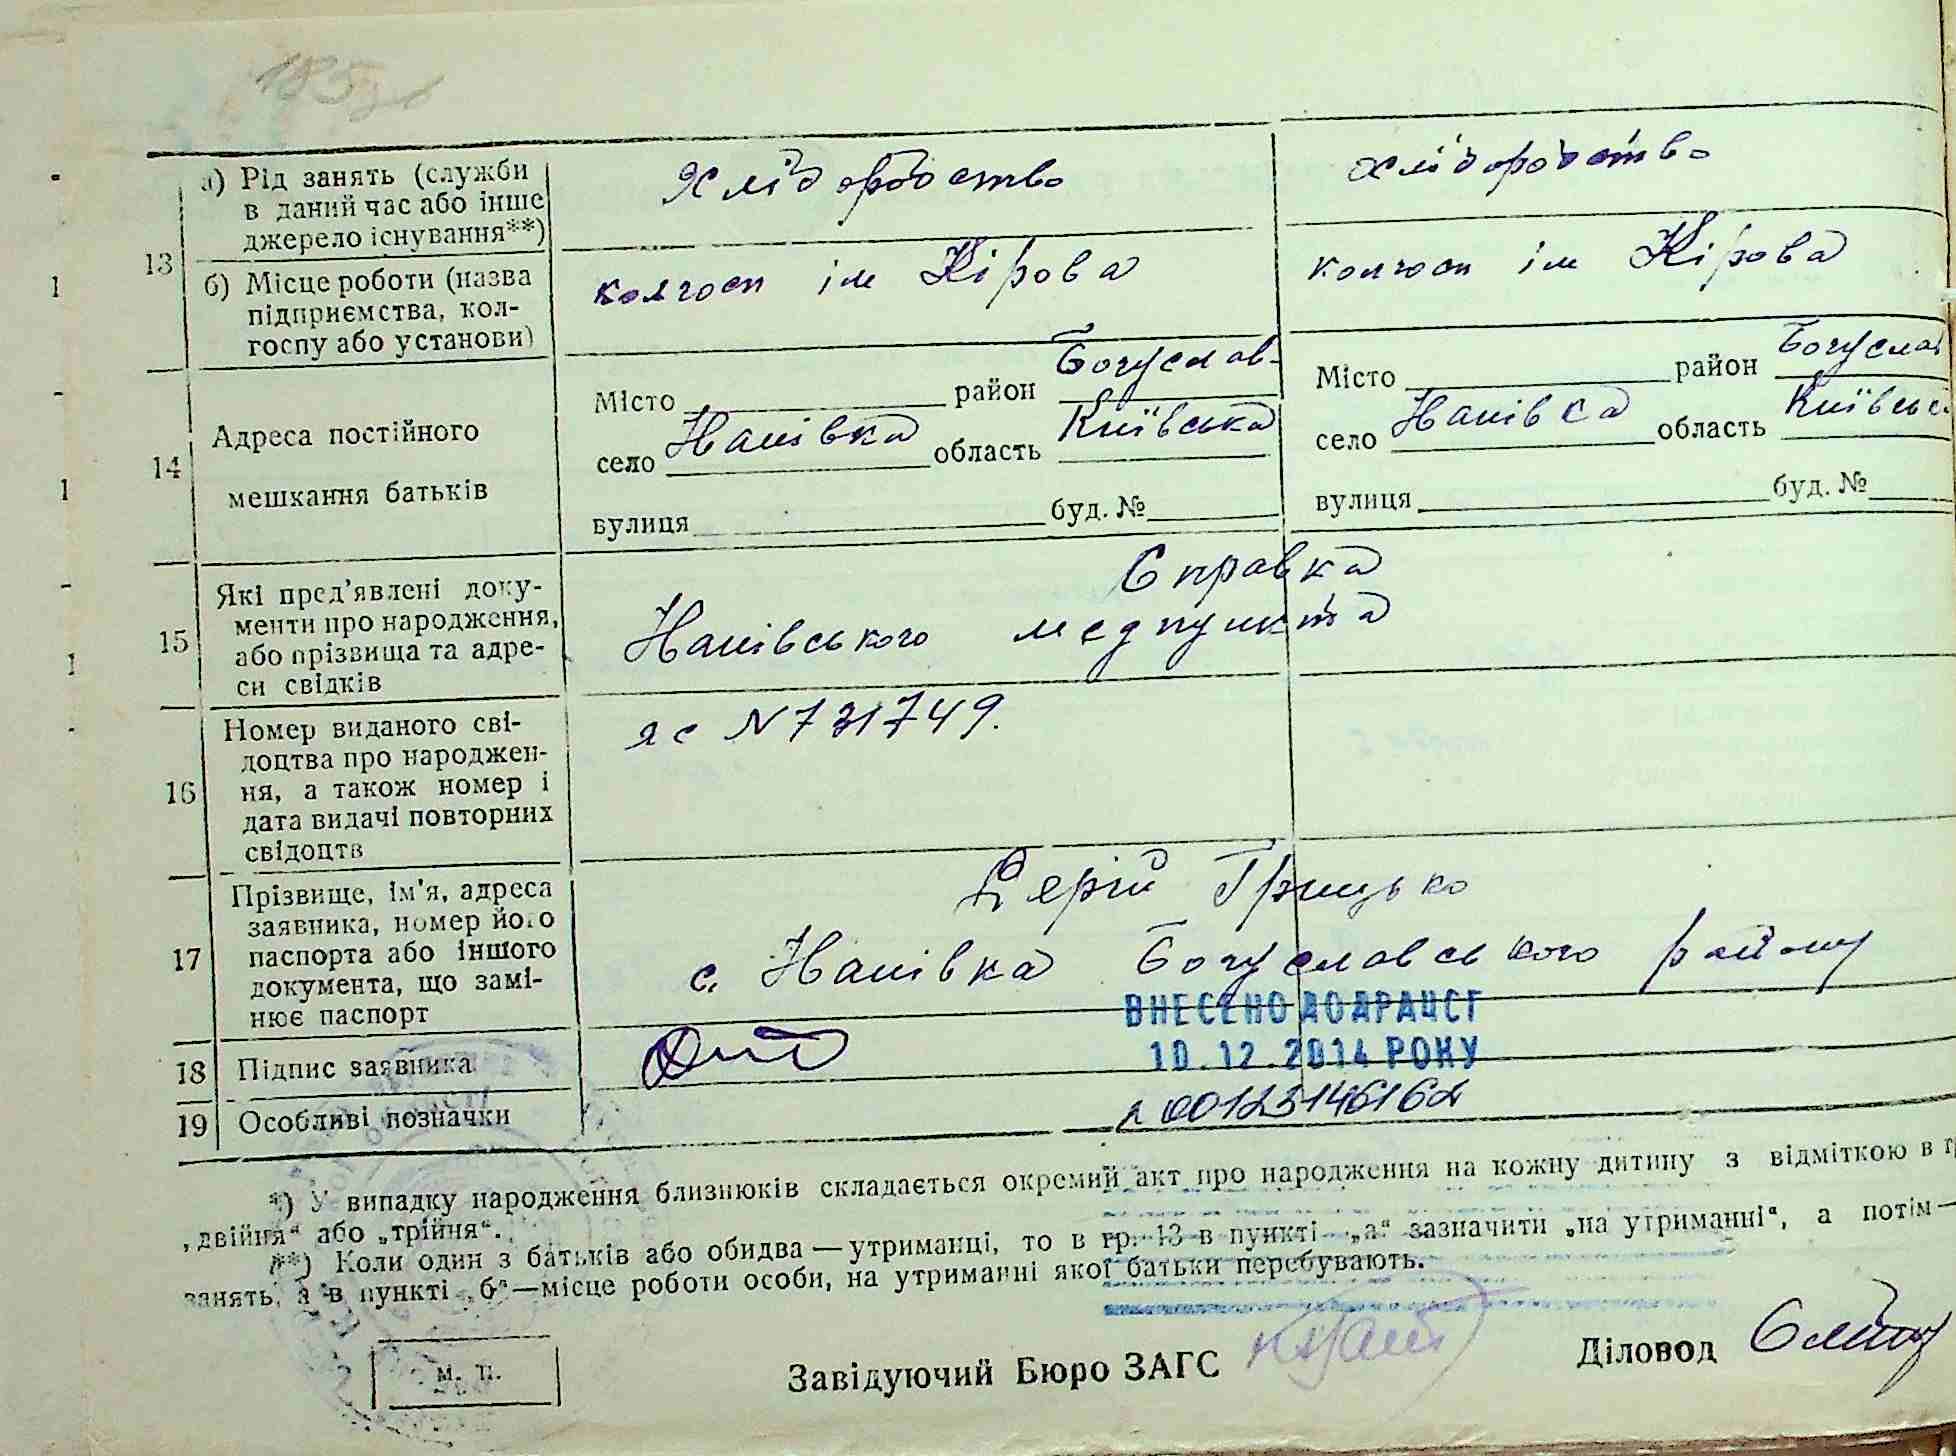 185зв
13
а) Рід занять (служби
в даний час або інше
джерело існування**)
Хліборобство
хліборобство
б) Місце роботи (назва
підприємства, кол-
госпу або установи)
колгосп ім Кірова
колгосп ім Кірова
14
Адреса постійного
мешкання батьків
Місто район Богуслав-
село Наш��вка область Київська
вулиця буд. №
Місто район Богуслав
село область Київськ
вулиця буд. №
15
Які пред'явлені доку-
менти про народження,
або прізвища та адре-
си свідків
Справка
медпункта
16
Номер виданого сві-
доцтва про народжен-
ня, а також номер і
дата видачі повторних
свідоцтв
яс N 731749.
17
Прізвище, ім'я, адреса
заявника, номер його
паспорта або іншого
документа, що замі-
нює паспорт
Грицько
с. Богуславського району
ВНЕСЕНО ДО ДРАЦСГ
10.12.2014 РОКУ
18
Підпис заявника
19
Особливі позначки
00123146162
*) У випадку народження близнюків складається окремий акт про народження на кожну дитину з відміткою в гр
„двійня“ або „трійня“.
**) Коли один з батьків або обидва — утриманці, то в гр. 13 в пункті „а“ зазначити „на утриманні“, а потім —
занять, а в пункті „б“ — місце роботи особи, на утриманні якої батьки перебувають.
М. П.
Завідуючий Бюро ЗАГС
Діловод